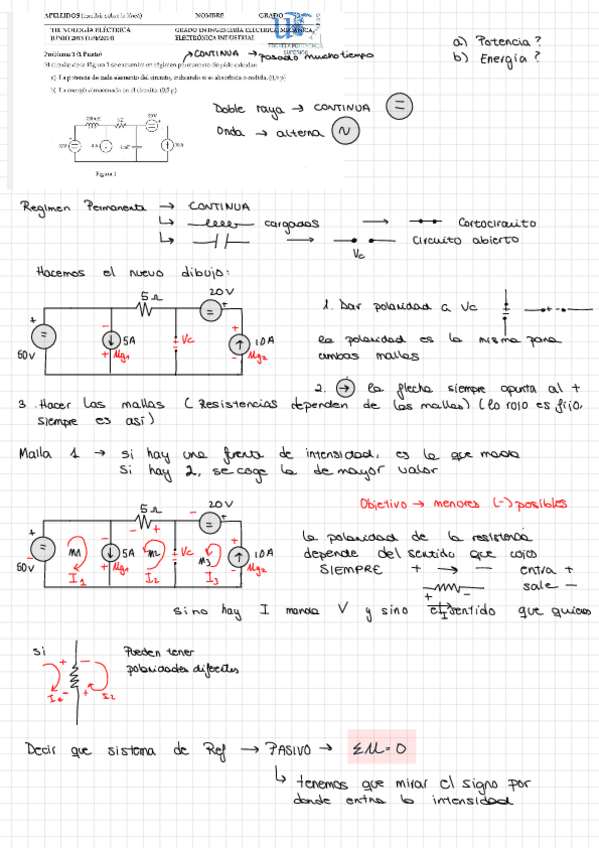 APELLIDOS (escribir sobre la línea) NOMBRE GRADO
TECNOLOGÍA ELÉCTRICA GRADO EN INGENIERÍA ELÉCTRICA, MECÁNICA,
ELECTRÓNICA INDUSTRIAL
ESCUELA POLITÉCNICA
SUPERIOR
Problema 1 (1 Punto)
→ CONTINUA → pasado mucho tiempo
a) Potencia?
b) Energía?
a) La potencia de cada elemento del circuito, indicando si es absorbida o cedida. (0,5 p)
b) La energía almacenada en el circuito. (0,5 p)
Doble raya → CONTINUA =
Onda → alterna ~
5Ω
20V
10A
Figura 1
Regimen Permanente → CONTINUA
cargados → Cortocircuito
→ Circuito abierto
Vc
Hacemos el nuevo dibujo:
5Ω 20V
60V 5A Mg1 Vc 10A Mg2
1. Dar polaridad a Vc
la polaridad es la misma para
ambas mallas
2. → la flecha siempre apunta al +
3. Hacer las mallas (Resistencias dependen de las mallas) (lo rojo es fijo,
siempre es así)
Malla 1 → si hay una fuente de intensidad, es la que manda
si hay 2, se coge la de mayor valor
5Ω 20V
60V M1 I1 5A Mg1 M2 I2 Vc M3 I3 10A Mg2
Objetivo → menores (-) posibles
la polaridad de la resistencia
depende del sentido que cojas
SIEMPRE + → - entra +
sale -
si no hay I manda V y sino el sentido que quieras
si
I2
Pueden tener
polaridades diferentes
Decir que sistema de Ref → PASIVO → ΣM=0
↳ tenemos que mirar el signo por
donde entra la intensidad